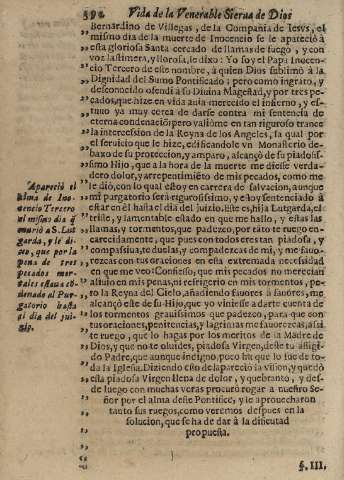 592 Vida de la Venerable Sierua de Dios
Bernardino de Villegas, de la Compañia de Iesvs, el
mismo dia de la muerte de Inocencio se le apareciò à
esta gloriosa Santa cercado de llamas de fuego, y con
voz lastimera, y llorosa, le dixo: Yo soy el Papa Inocen-
cio Tercero de este nombre, à quien Dios sublimò à la
Dignidad del Sumo Pontificado; pero como ingrato, y
desconocido ofendi à su Diuina Magestad, y por tres pe-
cados, que hize en vida auia merecido el infierno, y es-
tuuo ya muy cerca de darse contra mi sentencia de
eterna condenacion; pero valiòme en tan riguroso trance
la intercession de la Reyna de los Angeles, la qual por
el seruicio que le hize, edificandole vn Monasterio de-
baxo de su proteccion, y amparo, alcançò de su piadosis-
simo Hijo, que à la hora de la muerte me diesse verda-
dero dolor, y arrepentimiẽto de mis pecados, como me
le diò, con lo qual estoy en carrera de saluacion, aunque
mi purgatorio serà rigurosissimo, y estoy sentenciado à
estar en èl hasta el dia del juizio. Este es, hija Lutgarda, el
triste, y lamentable estado en que me hallo, y estas las
llamas, y tormentos, que padezco, por tãto te ruego en-
carecidamente, que pues con todos eres tan piadosa, y
compassiua, te duelas, y compadezcas de mi, y me fauo-
rezcas con tus oraciones en esta extremada necessidad
en que me veo: Confiesso, que mis pecados no merecian
aliuio en mis penas, ni refrigerio en mis tormentos, pe-
ro la Reyna del Cielo, añadiendo fauores à fauores, me
alcançò de su Hijo, que yo viniesse à darte cuenta de
los tormentos grauissimos que padezco, para que con
tus oraciones, penitencias, y lagrimas me fauorezcas, assi
te ruego, que lo hagas por los meritos de la Madre de
Dios, y que no te oluides, piadosa Virgen, deste tu afligi-
do Padre, que aunque indigno, poco hà que lo fue de to-
da la Iglesia. Diziendo esto desapareciò la vision, y quedò
esta piadosa Virgen llena de dolor, y quebranto, y des-
de luego con muchas veras procurò rogar à nuestro Se-
ñor por el alma deste Pontifice, y le aprouecharon
tanto sus ruegos, como veremos despues en la
solucion, que se ha de dar à la dificultad
propuesta.
Apareciò el
alma de Ino-
cencio Tercero
el mismo dia q̃
murió a S. Lut
garda, y le di-
xo, que por la
pena de tres
pecados mor-
tales estaua cõ
denado al Pur-
gatorio hasta
el dia del jui-
zio.
§. III.